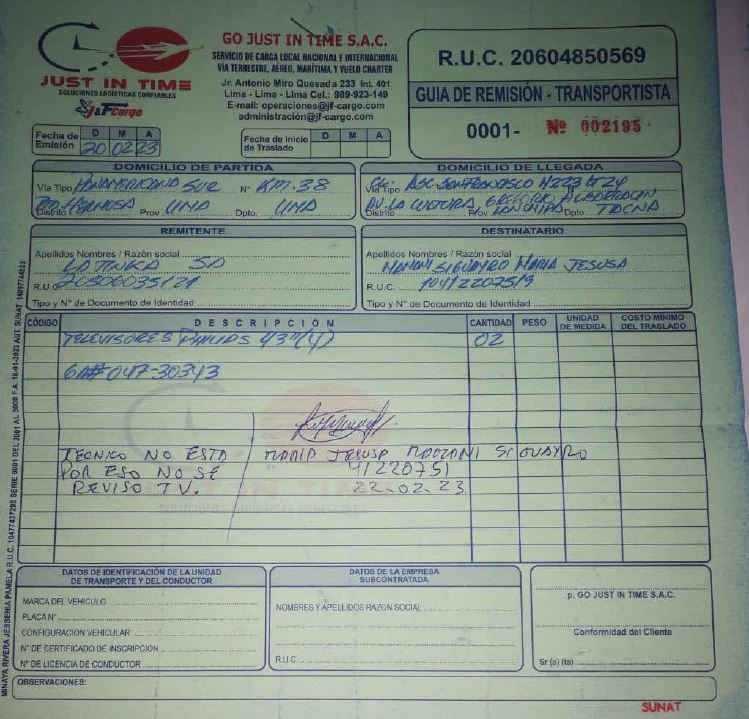 JUST IN TIME
SOLUCIONES LOGÍSTICAS CONFIABLES
J&F Cargo
GO JUST IN TIME S.A.C.
SERVICIO DE CARGA LOCAL NACIONAL E INTERNACIONAL
VÍA TERRESTRE, AEREO, MARÍTIMA Y VUELO CHARTER
Jr. Antonio Miro Quesada 233 Int. 401
Lima - Lima - Lima Cel.: 989-923-149
E-mail: operaciones@jf-cargo.com
administración@jf-cargo.com
R.U.C. 20604850569
GUIA DE REMISIÓN - TRANSPORTISTA
0001- Nº 002195
Fecha de Emisión D M A
20 02 23
Fecha de Inicio de Traslado D M A
DOMICILIO DE PARTIDA
Vía Tipo PANAMERICANA SUR N° KM. 38
Distrito HERMOSA Prov. LIMA Dpto. LIMA
DOMICILIO DE LLEGADA
Vía Tipo ASC SAN FRANCISCO
AV. LA CULTURA, GREGORIO ALBARRACIN
Distrito LANCHIPA Prov. Dpto. TACNA
REMITENTE
Apellidos Nombres / Razón social
LA TINKA SA
R.U.C. 20506035121
Tipo y N° de Documento de Identidad
DESTINATARIO
Apellidos Nombres / Razón social
MAMANI SIGUAYRO MARIA JESUSA
R.U.C. 10412207519
Tipo y N° de Documento de Identidad
CÓDIGO DESCRIPCIÓN CANTIDAD PESO UNIDAD DE MEDIDA COSTO MINIMO DEL TRASLADO
TELEVISORES PHILIPS 43" 02
047-30343
TECNICO NO ESTA
POR ESO NO SE
REVISO TV.
MARIA JESUSA MAMANI SIGUAYRO
41220751
22-02-23
DATOS DE IDENTIFICACIÓN DE LA UNIDAD DE TRANSPORTE Y DEL CONDUCTOR
MARCA DEL VEHICULO
PLACA N°
CONFIGURACION VEHICULAR
N° DE CERTIFICADO DE INSCRIPCION
N° DE LICENCIA DE CONDUCTOR
DATOS DE LA EMPRESA SUBCONTRATADA
NOMBRES Y APELLIDOS RAZON SOCIAL
R.U.C.
p. GO JUST IN TIME S.A.C.
Conformidad del Cliente
Sr (a) (ta)
OBSERVACIONES:
SUNAT
MINAYA RIVERA JESSENIA PAMELA R.U.C. 10477437295 SERIE 0001 DEL 2001 AL 3000 F.A. 18-01-2023 AUT. SUNAT